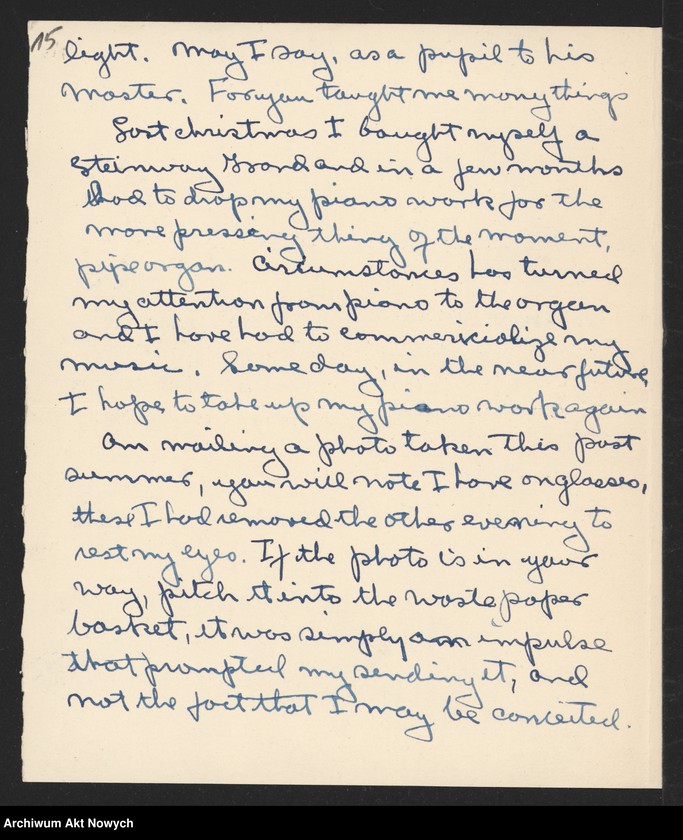 15
light. May I say, as a pupil to his
Master. For you taught me many things
Last christmas I bought myself a
Steinway Grand and in a few months
had to drop my piano work for the
more pressing thing of the moment,
pipe organ. Circumstances has turned
my attention from piano to the organ
and I have had to commericialize my
music. Some day, in the near future,
I hope to take up my piano work again
Am mailing a photo taken this past
summer, you will note I have on glasses,
these I had removed the other evening to
rest my eyes. If the photo is in your
way, pitch it into the waste paper
basket, it was simply an impulse
that prompted my sending it, and
not the fact that I may be conceited.
Archiwum Akt Nowych